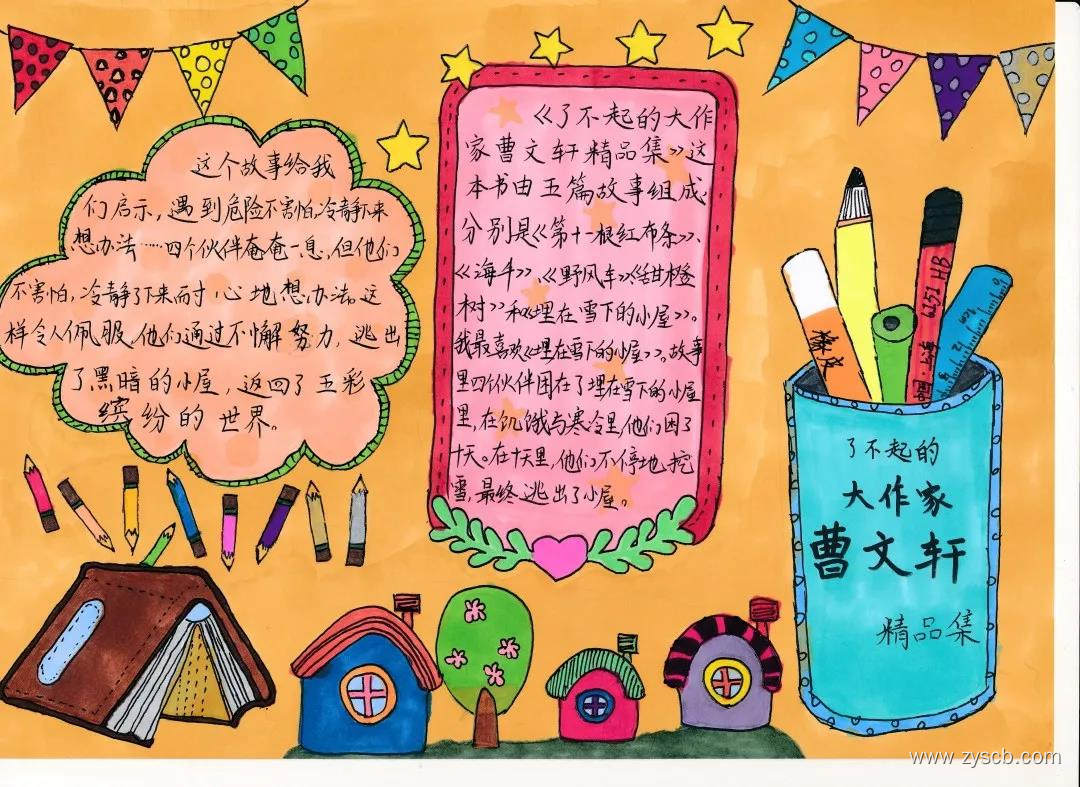 这个故事给我
们启示，遇到危险不害怕，冷静下来
想办法……四个伙伴奄奄一息，但他们
不害怕，冷静了下来而寸心地想办法。这
样令人佩服。他们通过不懈努力，逃出
了黑暗的小屋，返回了五彩
缤纷的世界。
《了不起的大作
家曹文轩精品集》这
本书由五篇故事组成，
分别是《第十一根红布条》、
《海牛》、《野风车》《甜橙
树》和《埋在雪下的小屋》。
我最喜欢《埋在雪下的小屋》。故事
里四个伙伴困在了埋在雪下的小屋
里，在饥饿与寒冷里，他们困了
十天。在十天里，他们不停地挖
雪，最终逃出了小屋。
橡皮
6151 HB
中国·上海
了不起的
大作家
曹文轩
精品集
www.zyscb.com